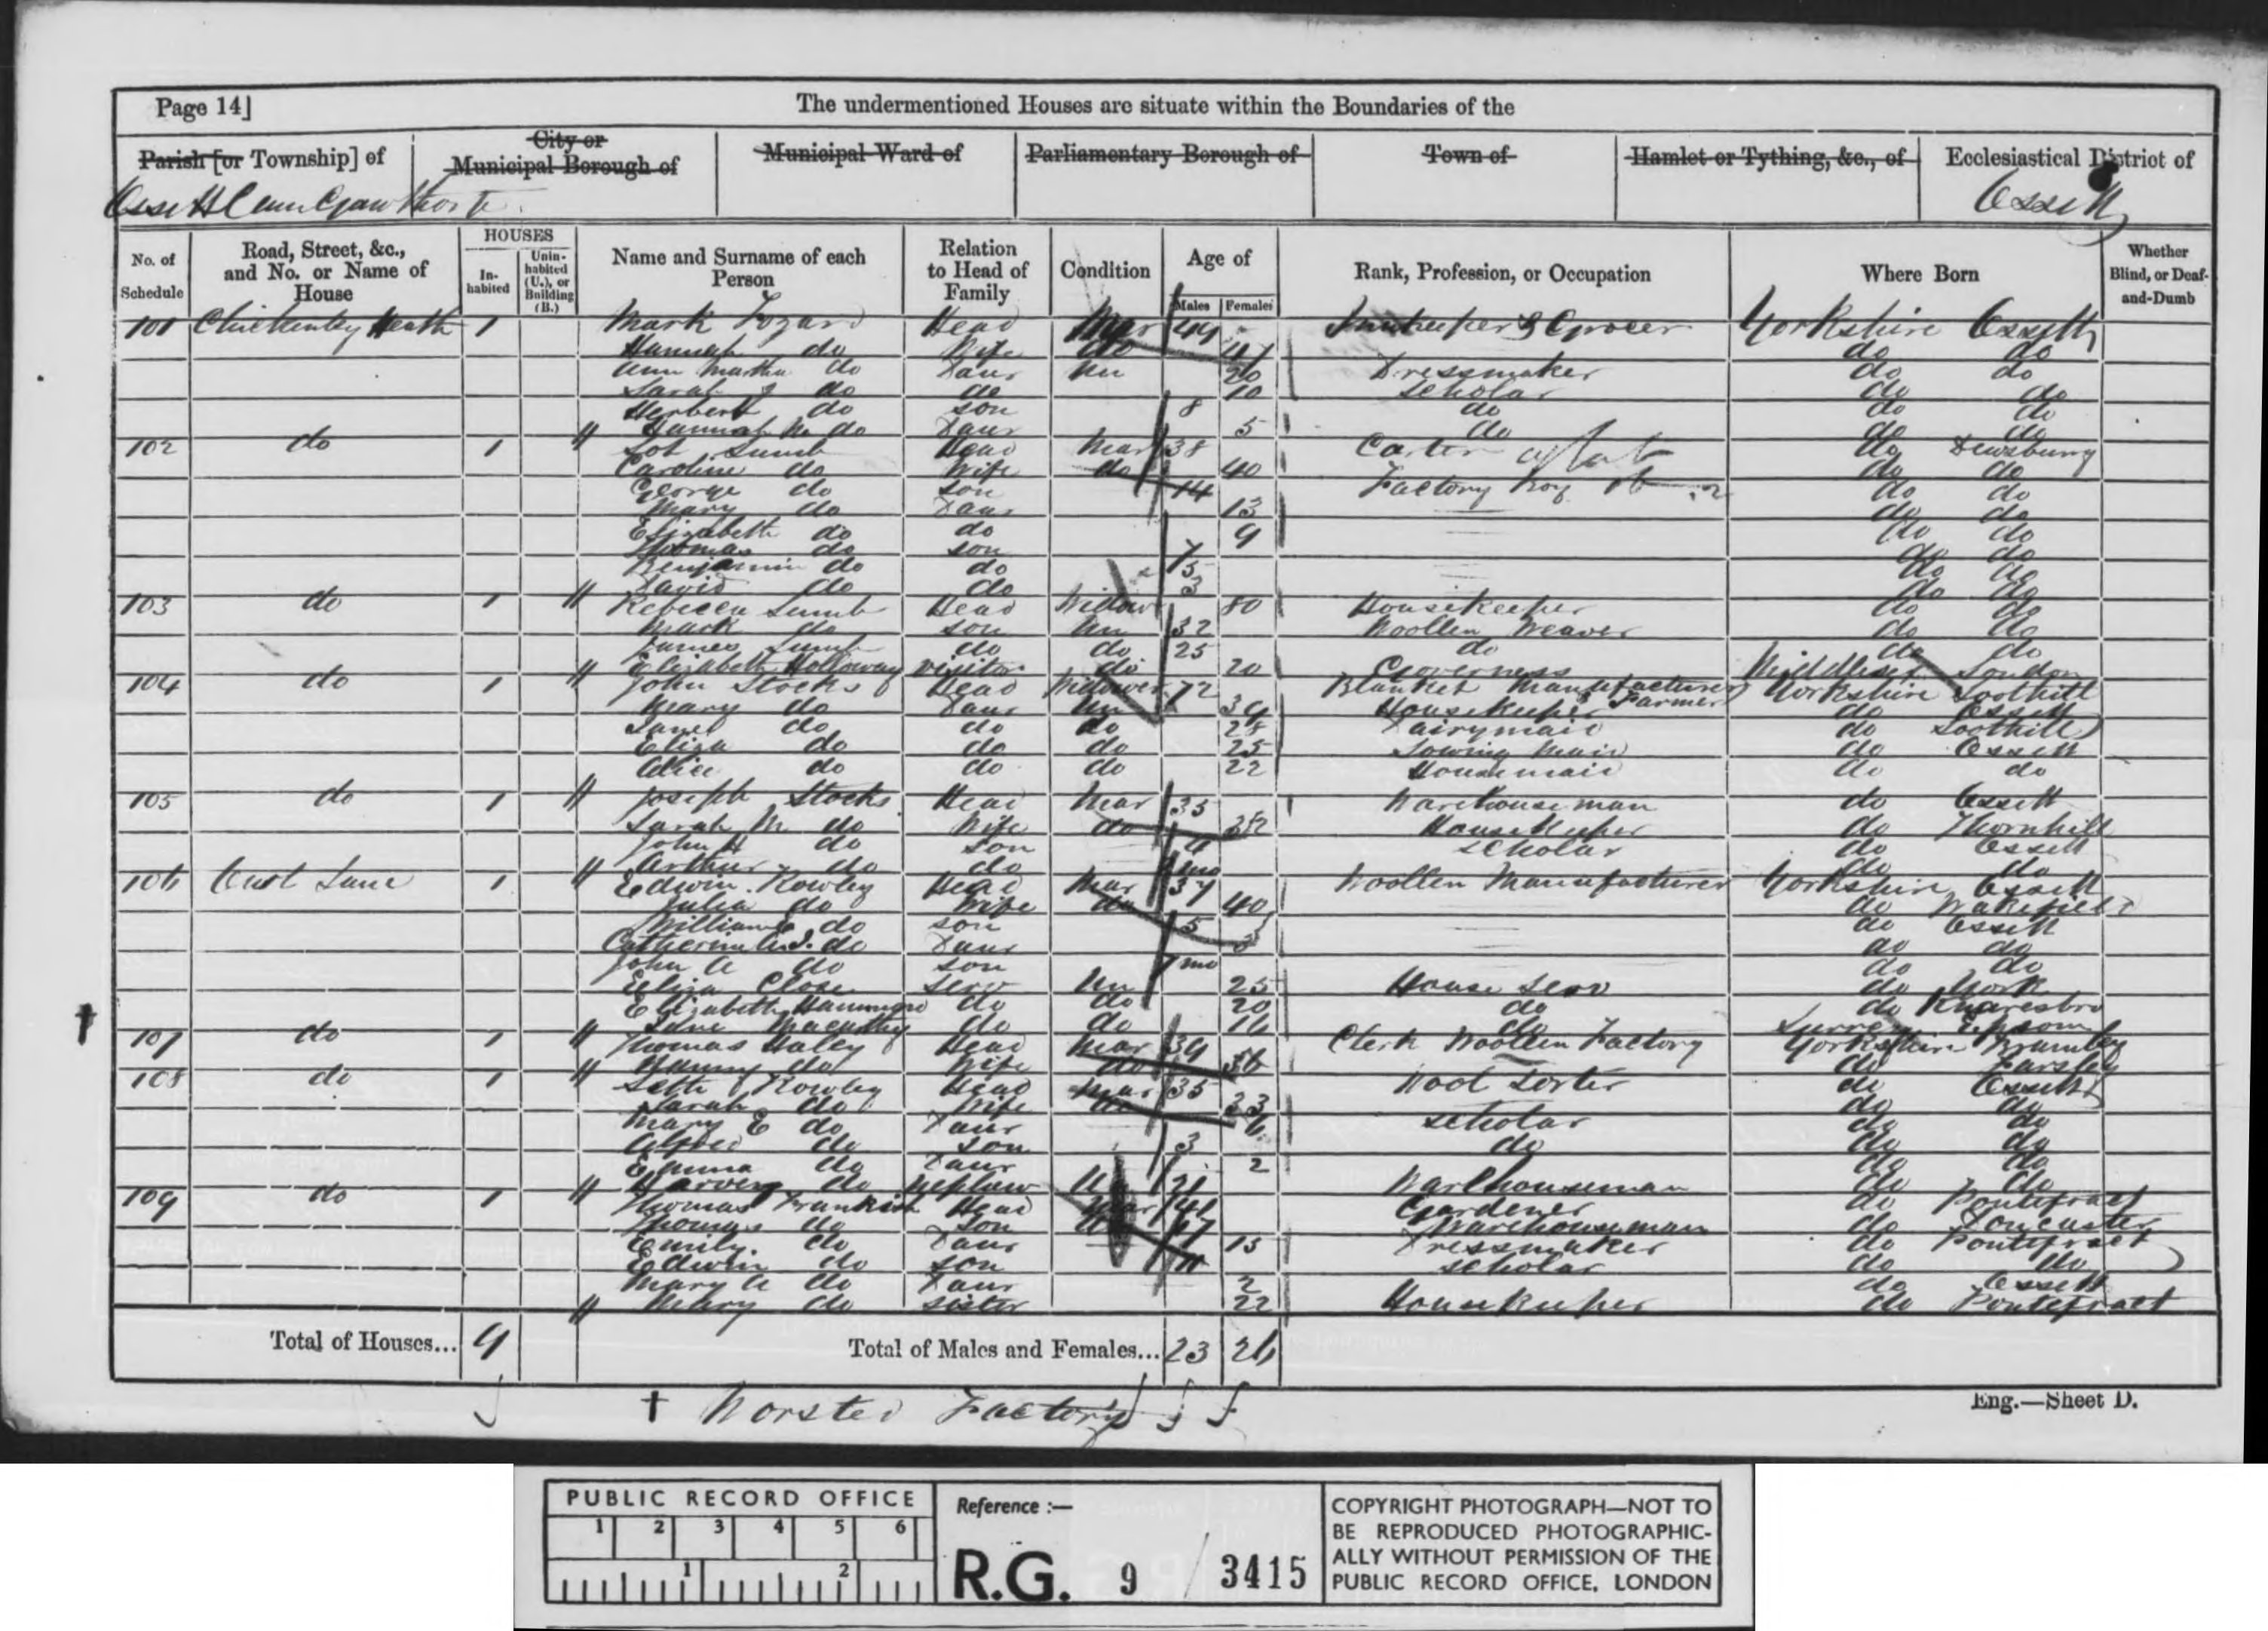 Page 14]
The undermentioned Houses are situate within the Boundaries of the
Parish [or Township] of
City or Municipal Borough of
Municipal Ward of
Parliamentary Borough of
Town of
Hamlet or Tything, &c., of
Ecclesiastical District of
Ossett Cum Gawthorpe
Ossett
No. of Schedule
Road, Street, &c., and No. or Name of House
HOUSES
In-habited
Unin-habited (U.), or Building (B.)
Name and Surname of each Person
Relation to Head of Family
Condition
Age of
Males
Females
Rank, Profession, or Occupation
Where Born
Whether Blind, or Deaf-and-Dumb
101 Chickenley Heath 1 Mark Fozard Head Mar 44 Innkeeper & Grocer Yorkshire Ossett
Hannah do Wife do do do
Ann Martha do Daur Un 20 Dressmaker do do
Sarah do do 10 Scholar do do
Herbert do son 8 do do do
Hannah M do Daur 5 do do do
102 do 1 Lot Lumb Head Mar 38 Carter do Dewsbury
Caroline do Wife do 40 do do
George do son 14 Factory boy do do
Mary do Daur 13 do do
Elizabeth do do 9 do do
Thomas do son 7 do do
Benjamin do do 5 do do
David do do 3 do do
103 do 1 Rebecca Lumb Head Widow 80 Housekeeper do do
Mark do son Un 32 Woollen Weaver do do
James Lumb do do 25 do do do
Elizabeth Holloway visitor do 20 Governess Middlesex London
104 do 1 John Stocks Head Widower 72 Blanket Manufacturer & Farmer Yorkshire Soothill
Mary do Daur Un 34 Housekeeper do Ossett
Janet do do do 28 Dairymaid do Soothill
Eliza do do do 25 Sowing Maid do Ossett
Alice do do do 22 Housemaid do do
105 do 1 Joseph Stocks Head Mar 35 Warehouseman do Ossett
Sarah M do Wife do 32 Housekeeper do Thornhill
John H do son 4 scholar do Ossett
Arthur do do mo do do
106 Lane 1 Edwin Rowley Head Mar 37 Woollen Manufacturer Yorkshire Ossett
Julia do Wife do 40 do Wakefield
William do son 5 do Ossett
Catherine do Daur 3 do do
John A do son mo do do
Eliza Close serv Un 25 House serv do York
Elizabeth do do 20 do do Knaresbro
Jane do do 16 do Surrey Epsom
107 do 1 Thomas Haley Head Mar 39 Clerk Woollen Factory Yorkshire Bramley
Hanny do Wife do 36 do Farsley
108 do 1 Seth Rowley Head Mar 35 Wool Sorter do Ossett
Sarah do Wife do 33 do do
Mary E do Daur 6 scholar do do
Alfred do son 3 do do do
Emma do Daur 2 do do
Harvey do Nephew Un 21 Warehouseman do do
109 do 1 Thomas Frankish Head Mar 41 Gardener do Pontefract
Thomas do son 17 Warehouseman do Doncaster
Emily do Daur 15 Dressmaker do Pontefract
Edwin do son 11 scholar do do
Mary A do Daur 2 do Ossett
Mary do sister 22 Housekeeper do Pontefract
Total of Houses... 9
Total of Males and Females... 23 26
† Worsted Factory
Eng.—Sheet D.
PUBLIC RECORD OFFICE
1 2 3 4 5 6
1 2
Reference :—
R.G. 9 / 3415
COPYRIGHT PHOTOGRAPH—NOT TO
BE REPRODUCED PHOTOGRAPHIC-
ALLY WITHOUT PERMISSION OF THE
PUBLIC RECORD OFFICE, LONDON